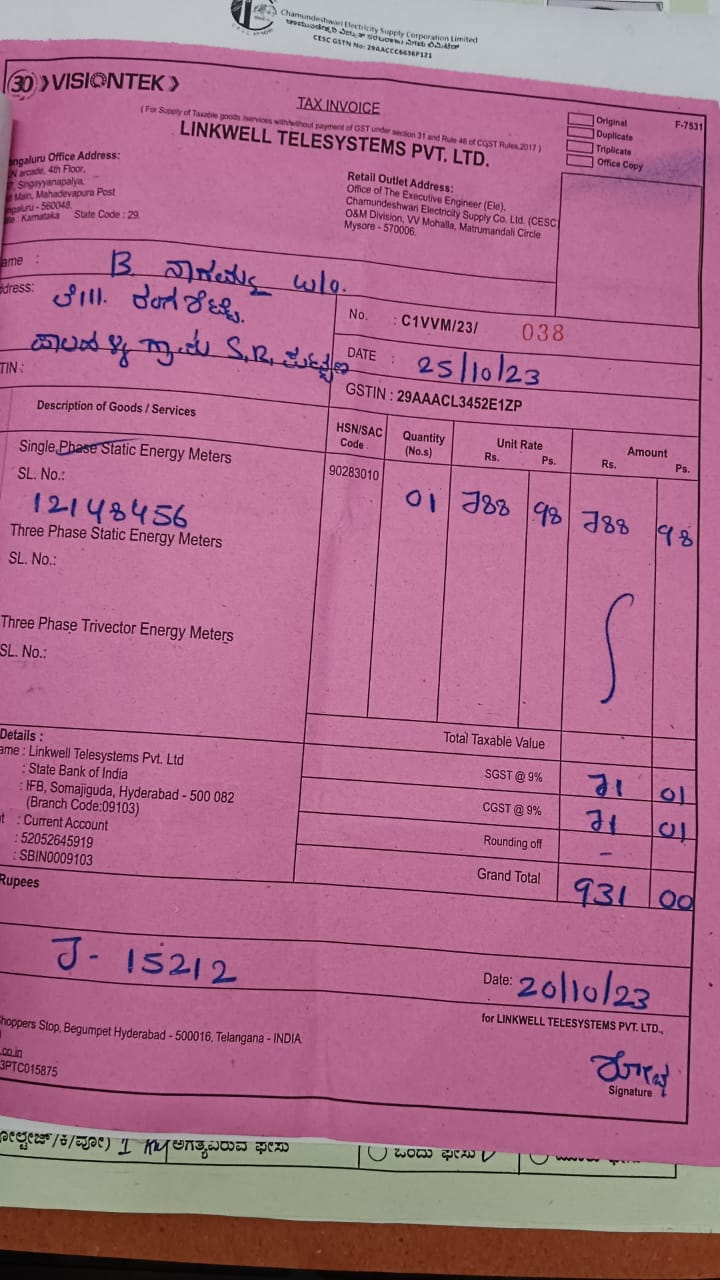 Chamundeshwari Electricity Supply Corporation Limited
ಚಾಮುಂಡೇಶ್ವರಿ ವಿದ್ಯುತ್ ಸರಬರಾಜು ನಿಗಮ ನಿಯಮಿತ
CESC GSTN No: 29AACCC6636F1Z1
30 VISIONTEK
TAX INVOICE
( For Supply of Taxable goods /services with/without payment of GST under section 31 and Rule 46 of CGST Rules,2017 )
LINKWELL TELESYSTEMS PVT. LTD.
Original
F-7531
Duplicate
Triplicate
Office Copy
angaluru Office Address:
N arcade, 4th Floor,
Singayyanapalya,
Main, Mahadevapura Post
ngaluru - 560048.
Karnataka State Code : 29.
Retail Outlet Address:
Office of The Executive Engineer (Ele),
Chamundeshwari Electricity Supply Co. Ltd. (CESC
O&M Division, VV Mohalla, Matrumandali Circle
Mysore - 570006.
ame : B ನಾಗಮ್ಮ W/o.
dress:
ಪಾಲಹಳ್ಳಿ ಗ್ರಾಮ S.R.
TIN :
No. : C1VVM/23/ 038
DATE : 25/10/23
GSTIN : 29AAACL3452E1ZP
Description of Goods / Services
HSN/SAC Code
Quantity (No.s)
Unit Rate
Rs. Ps.
Amount
Rs. Ps.
Single Phase Static Energy Meters
90283010 01 788 98 788 98
SL. No.:
12148456
Three Phase Static Energy Meters
SL. No.:
Three Phase Trivector Energy Meters
SL. No.:
Total Taxable Value
SGST @ 9% 71 01
CGST @ 9% 71 01
Rounding off -
Grand Total 931 00
Details :
ame : Linkwell Telesystems Pvt. Ltd
: State Bank of India
: IFB, Somajiguda, Hyderabad - 500 082
(Branch Code:09103)
t : Current Account
: 52052645919
: SBIN0009103
Rupees
J - 15212
Date: 20/10/23
for LINKWELL TELESYSTEMS PVT. LTD.,
hoppers Stop, Begumpet Hyderabad - 500016, Telangana - INDIA.
.co.in
3PTC015875
Signature
ವೋಲ್ಟೇಜ್/ಕಿ/ವೋ) 1 KW ಅಗತ್ಯವಿರುವ ಫೇಸು
ಒಂದು ಫೇಸು